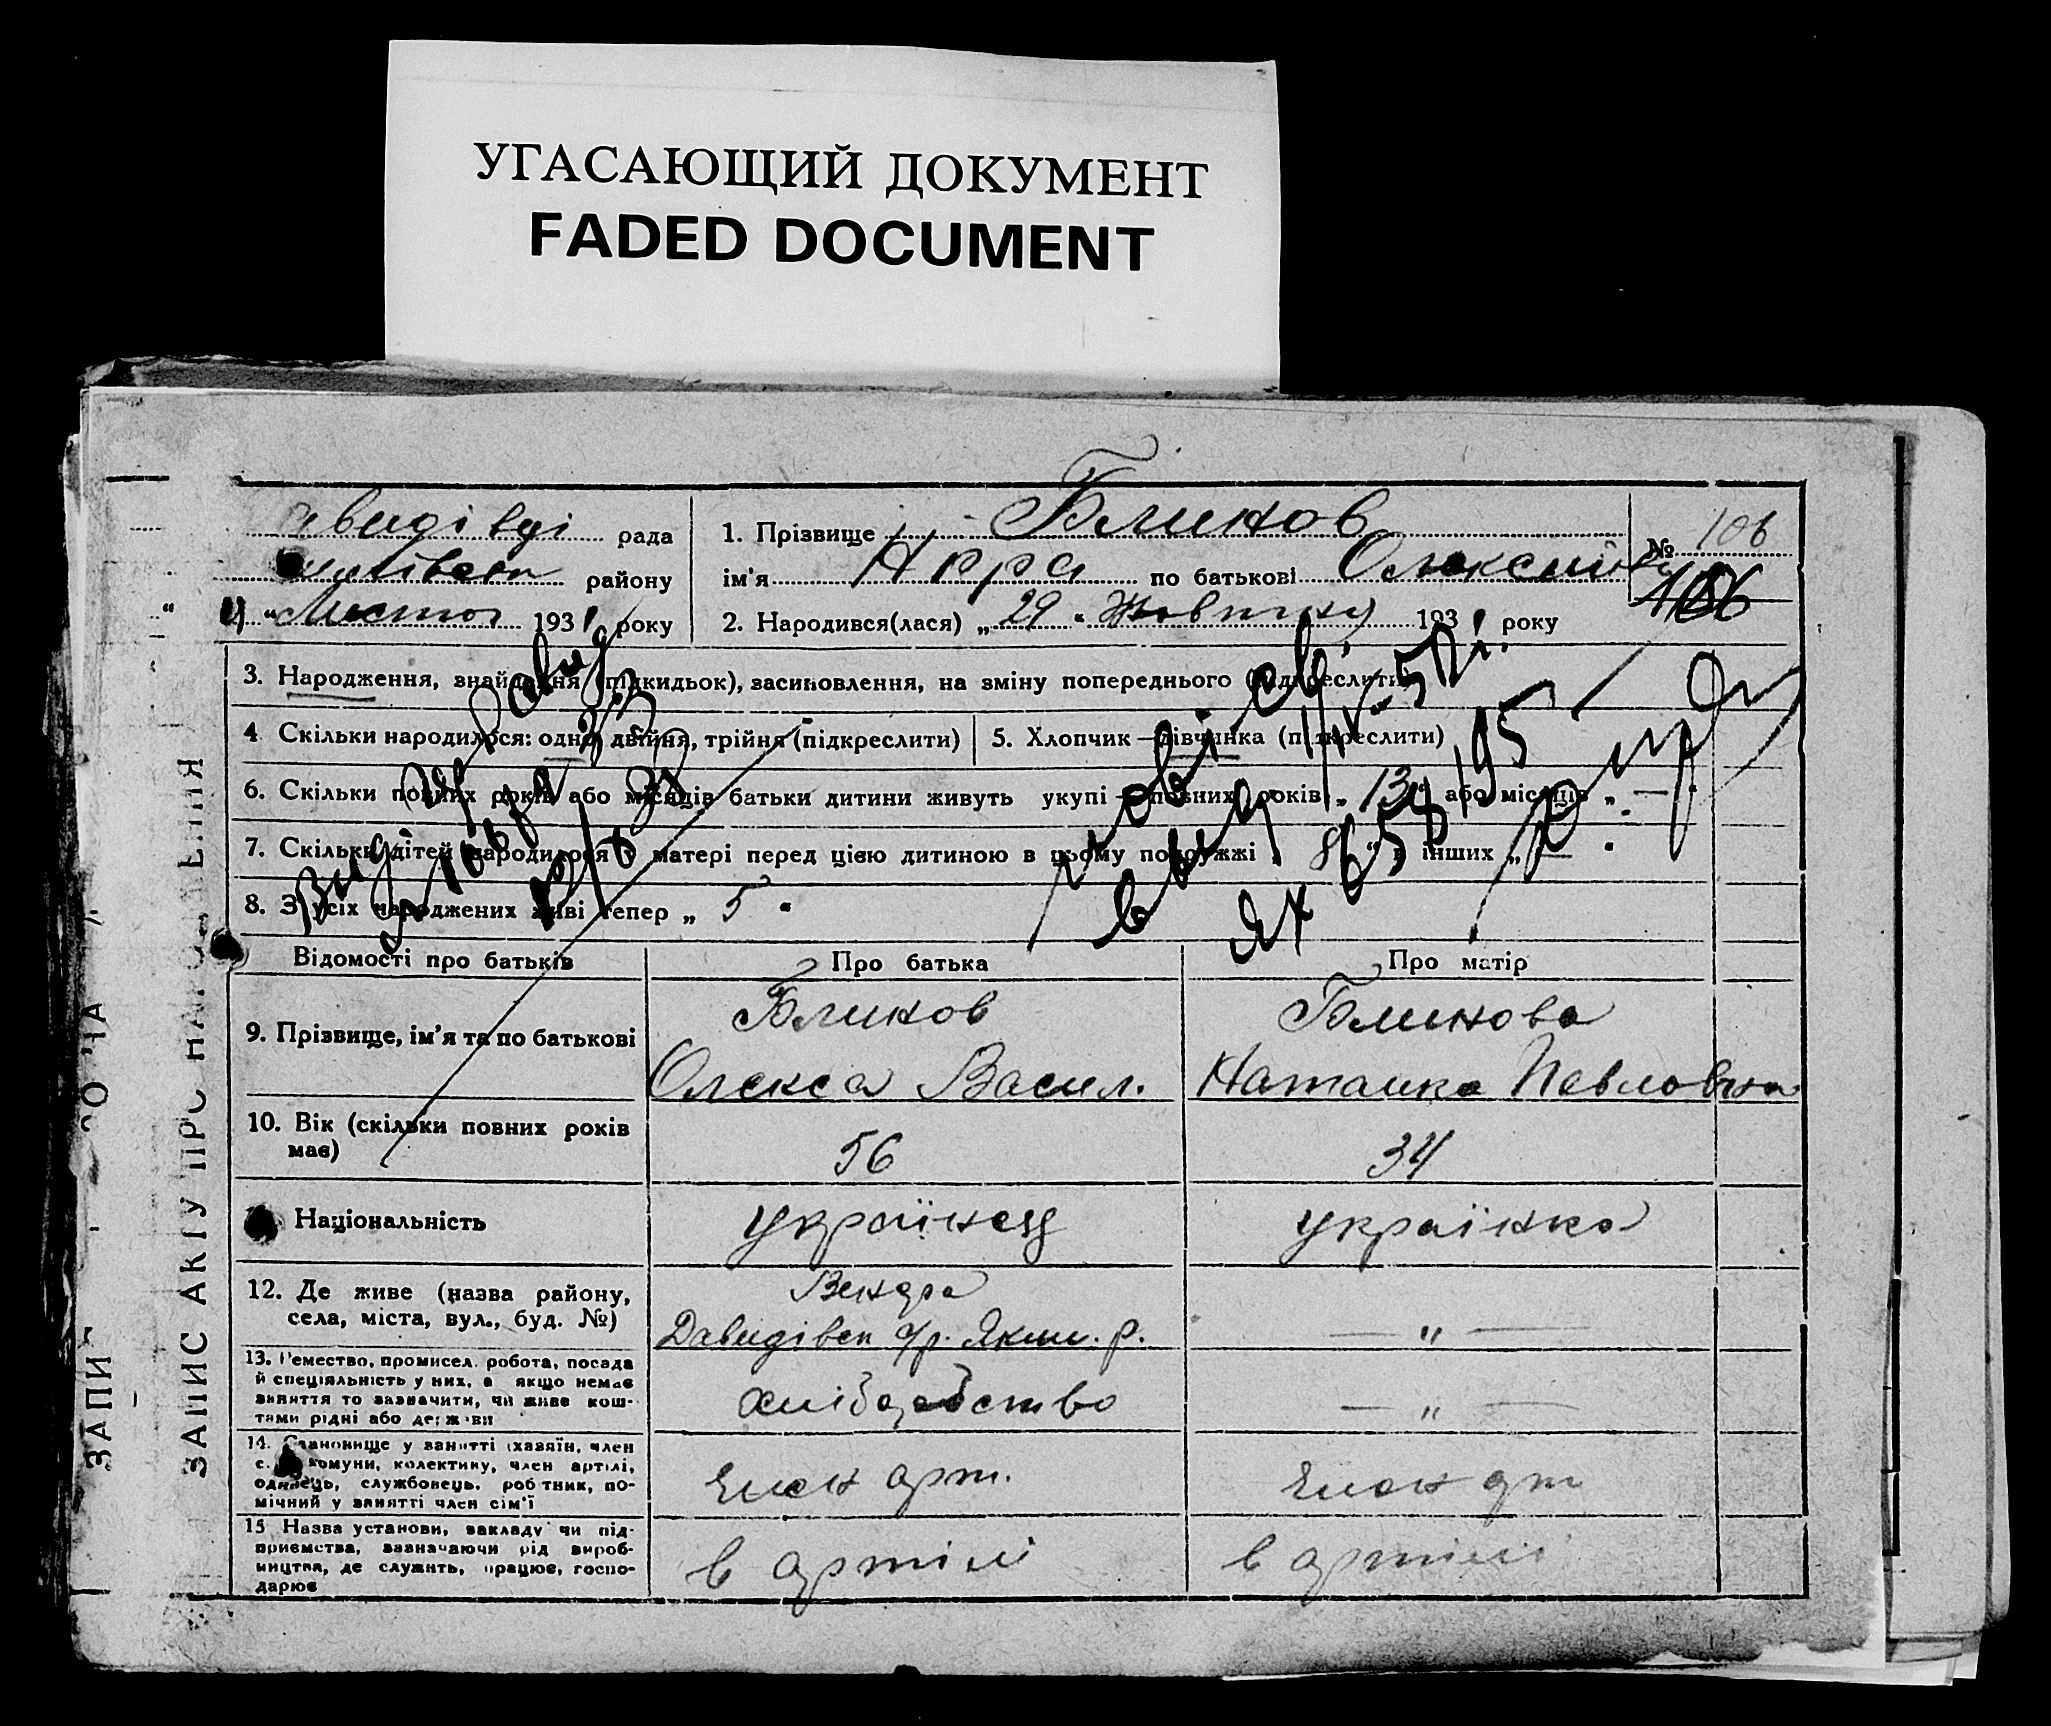 УГАСАЮЩИЙ ДОКУМЕНТ
FADED DOCUMENT
авидівці рада
району
4 "Листоп 1931 року
1. Прізвище Блинов
ім'я по батькові Олексіївна
2. Народився(лася) „29" Жовтня 1931 року
№ 106
106
3. Народження, знайдення (підкидьок), засиновлення, на зміну попереднього (підкреслити)
4 Скільки народилося: одна, двійня, трійня (підкреслити)
5. Хлопчик—дівчинка (підкреслити)
6. Скільки повних років або місяців батьки дитини живуть укупі — повних років „ 13 " або місяців „ — "
7. Скільки дітей народилося у матері перед цією дитиною в цьому подружжі „ 8 " в інших „ — "
8. З усіх народжених живі тепер „ 5 "
ЗАПИС АКТУ ПРО НАРОДЖЕННЯ
Відомості про батьків
Про батька
Про матір
9. Прізвище, ім'я та по батькові
Блинов
Олекса Васил.
Блинова
Наталка Павловна
10. Вік (скільки повних років має)
56
34
Національність
українец
українка
12. Де живе (назва району, села, міста, вул., буд. №)
Давидівсп с/р. Яким. р.
— " —
13. Ремество, промисел, робота, посада й спеціяльність у них, а якщо немає заняття то зазначити, чи живе коштами рідні або держави
хліборобство
— " —
14. Становище у занятті (хазяїн, член с. комуни, колективу, член артілі, одинець, службовець, робітник, помічний у занятті член сім'ї
член арт.
член арт
15 Назва установи, закладу чи підприємства, зазначаючи рід виробництва, де служить, працює, господарює
в артілі
в артілі